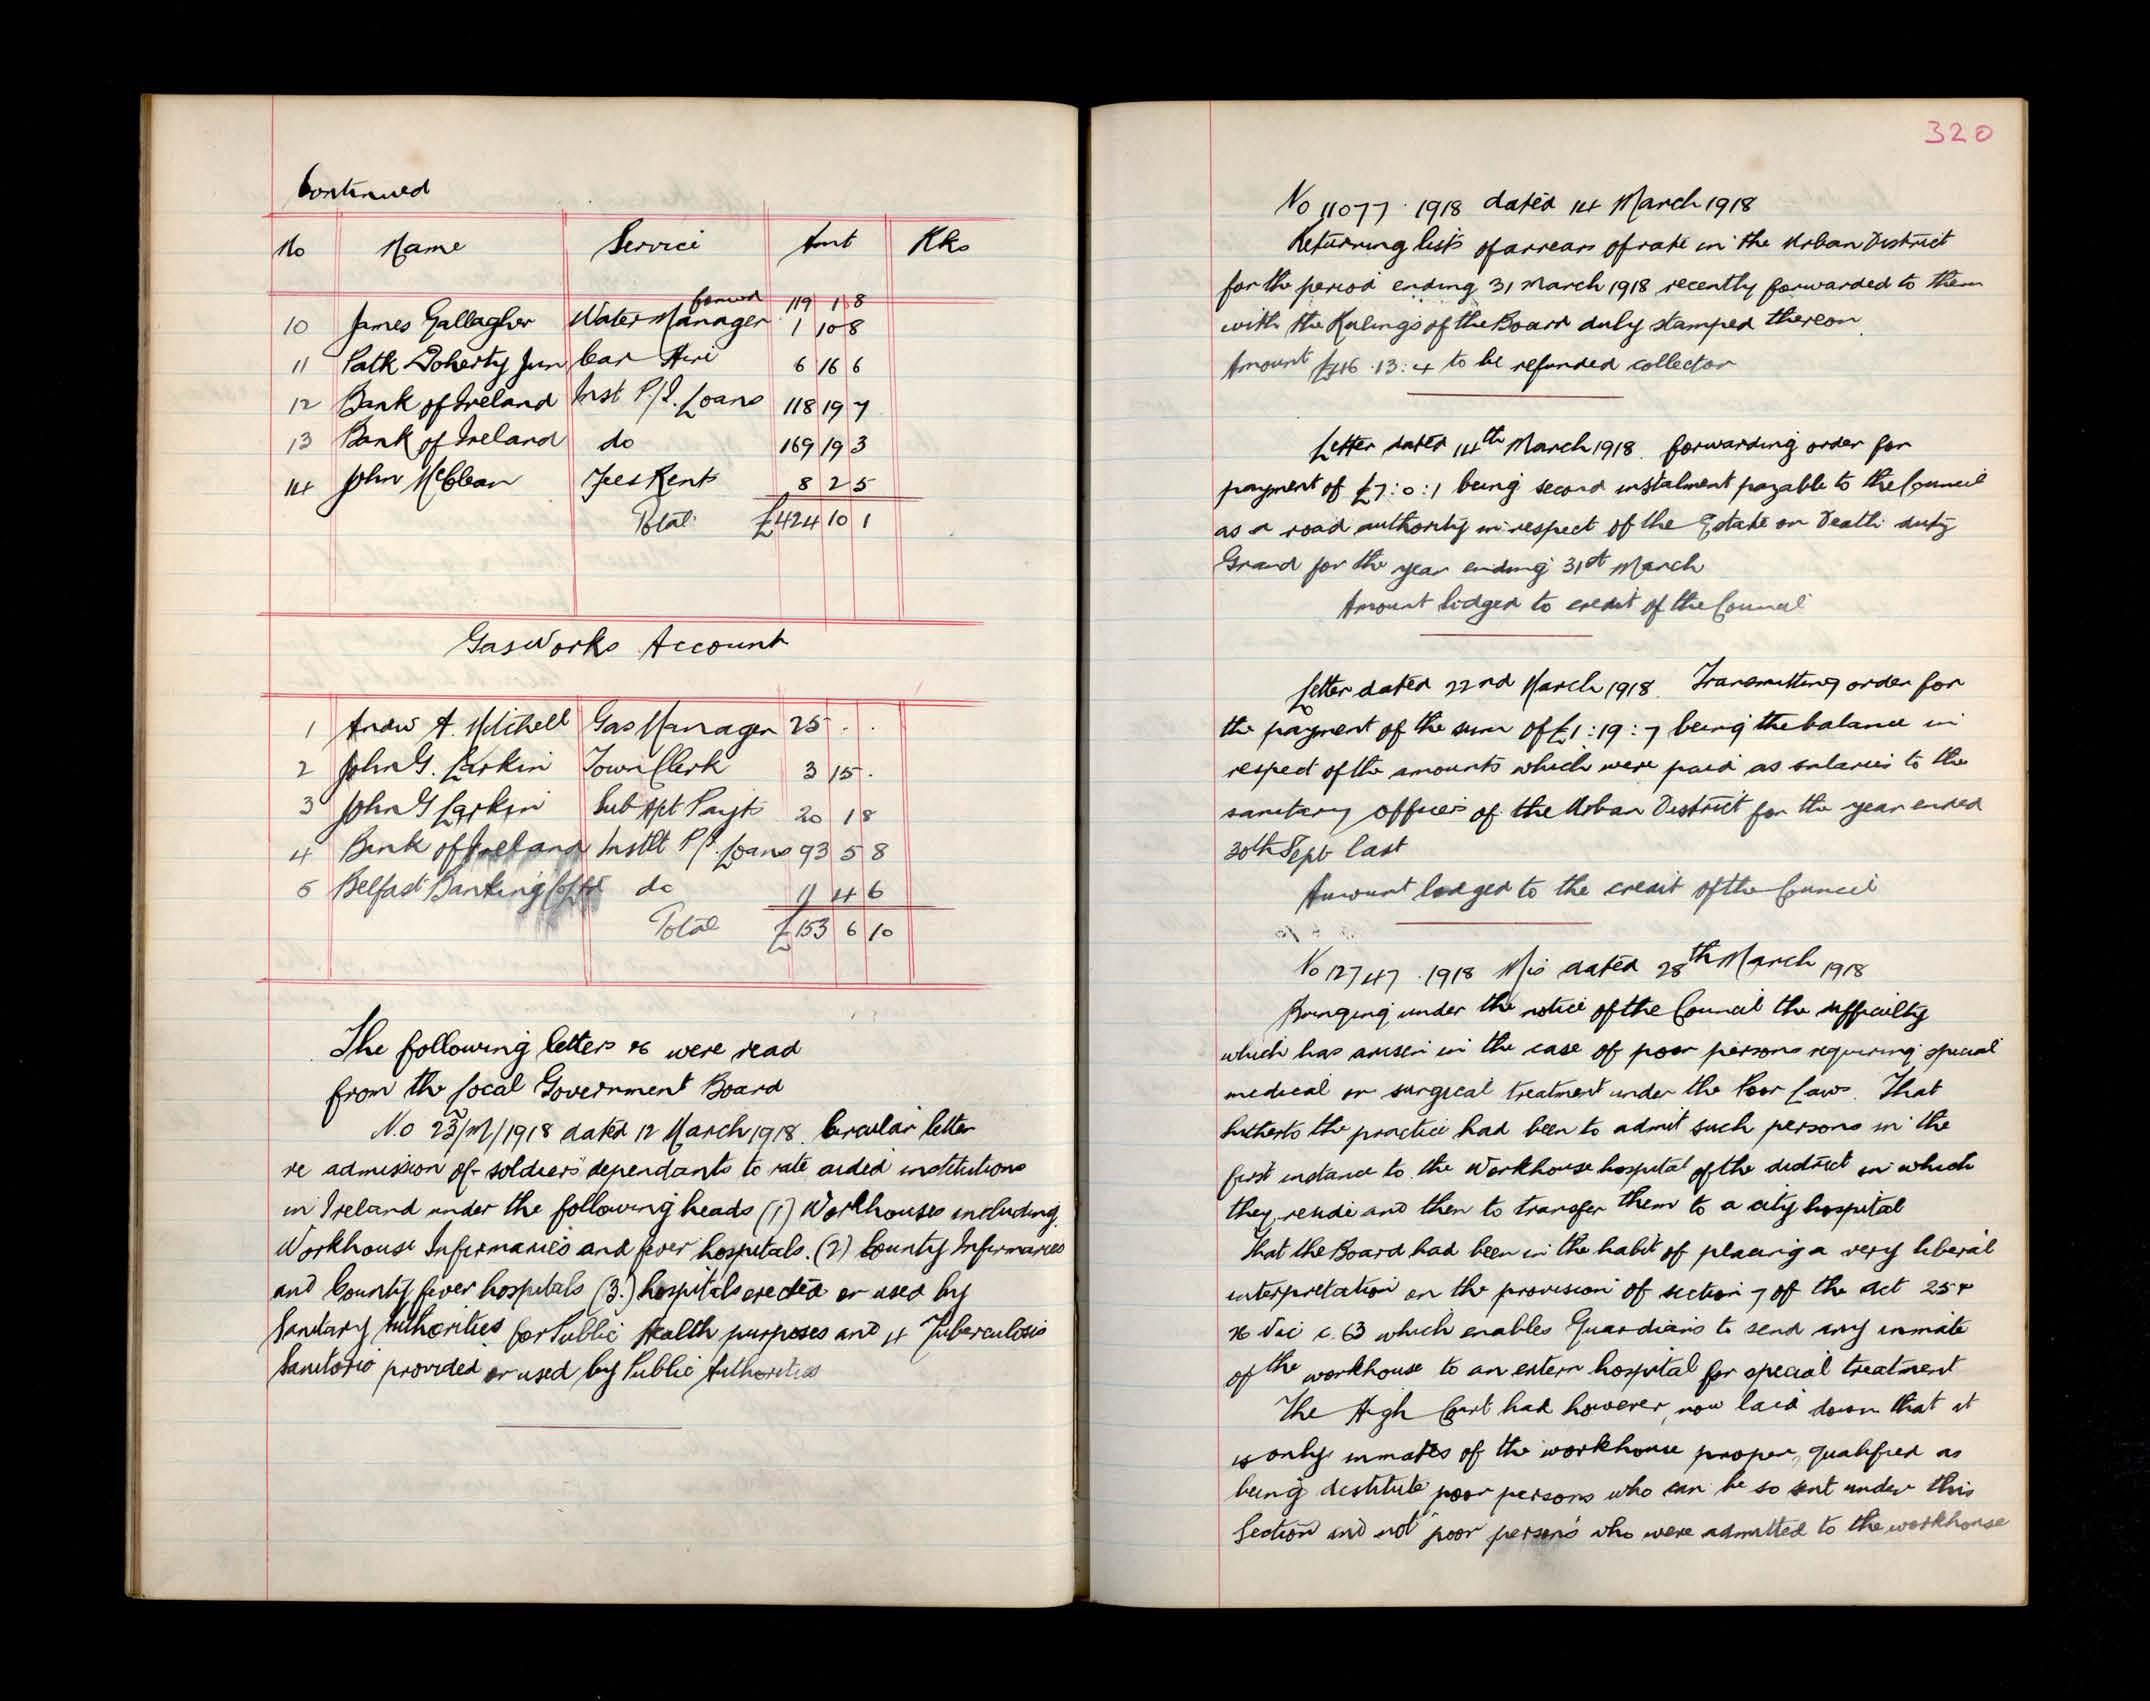 Continued
No Name Service Amt Rks
forwd 119 1 8
10 James Gallagher Water Manager 1 10 8
11 Patk Doherty Jun Car Hire 6 16 6
12 Bank of Ireland Inst P/I. Loans 118 19 7
13 Bank of Ireland do 169 19 3
14 John McClean Fees Rents 8 2 5
Total £424 10 1
Gas Works Account
1 Andw A. Mitchell Gas Manager 25 . .
2 John G. Larkin Town Clerk 3 15 .
3 John G Larkin Sub Apt Paymts 20 1 8
4 Bank of Ireland Instlt P/I. Loans 93 5 8
5 Belfast Banking Co Ltd do 11 4 6
Total £153 6 10
The following letters &c were read
from the Local Government Board
No 23/M/1918 dated 12 March 1918. Circular letter
re admission of soldiers' dependants to rate aided institutions
in Ireland under the following heads (1) Workhouses including
Workhouse Infirmaries and fever hospitals. (2) County Infirmaries
and County fever hospitals (3.) hospitals erected or used by
Sanitary Authorities for Public Health purposes and 4 Tuberculosis
Sanitoria provided or used by Public Authorities
320
No 11077. 1918 dated 14 March 1918
Returning lists of arrears of rate in the Urban District
for the period ending 31 March 1918 recently forwarded to them
with the Rulings of the Board duly stamped thereon.
Amount £46. 13: 4 to be refunded collector
Letter dated 14th March 1918. forwarding order for
payment of £7: 0: 1 being second instalment payable to the Council
as a road authority in respect of the Estate or Death duty
Grand for the year ending 31st March
Amount lodged to credit of the Council
Letter dated 22nd March 1918. Transmitting order for
the payment of the sum of £1: 19: 7 being the balance in
respect of the amounts which were paid as salaries to the
sanitary officers of the Urban District for the year ended
30th Sept last
Amount lodged to the credit of the Council
No 12747. 1918 Mis dated 28th March 1918
Bringing under the notice of the Council the difficulty
which has arisen in the case of poor persons requiring special
medical or surgical treatment under the Poor Laws. That
hitherto the practice had been to admit such persons in the
first instance to the Workhouse hospital of the district in which
they reside and then to transfer them to a city hospital
That the Board had been in the habit of placing a very liberal
interpretation on the provision of section 7 of the act 25 &
26 Vic c. 63 which enables Guardians to send any inmate
of the workhouse to an extern hospital for special treatment
The High Court had however, now laid down that it
is only inmates of the workhouse proper, qualified as
being destitute poor persons who can be so sent under this
Section and not "poor persons" who were admitted to the workhouse